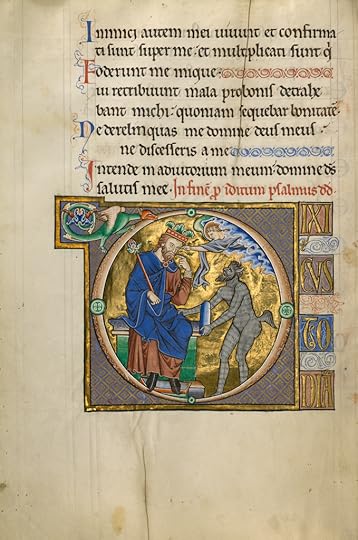 Inimici autem mei vivunt et confirma
ti sunt super me et multiplicati sunt q
oderunt me inique
ui retribuunt mala pro bonis detrahe
bant michi quoniam sequebar bonitate
Ne derelinquas me domine deus meus
ne discesseris a me
Intende in adiutorium meum domine ds
salutis mee In fine p iditum psalmus dd
D
TO